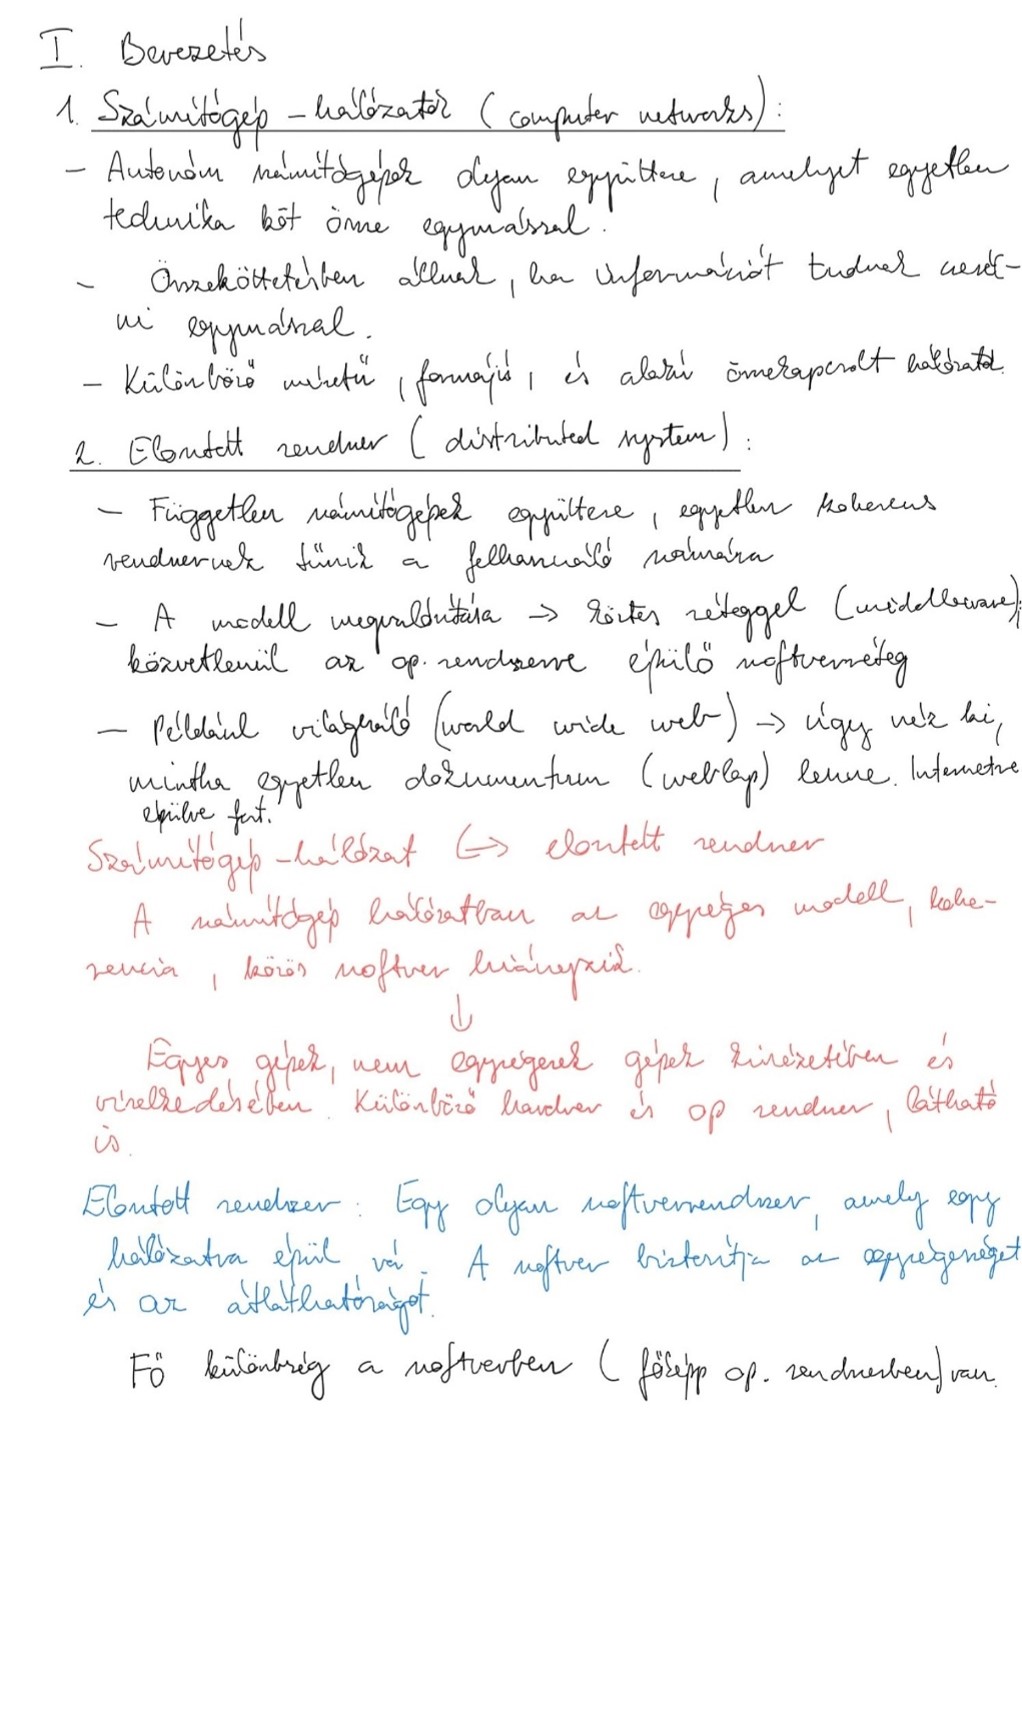 I. Bevezetés
1. Számítógép-hálózatok (computer networks):
- Autonóm számítógépek olyan együttese, amelyet egyetlen
technika köt össze egymással.
- Összeköttetésben állnak, ha információt tudnak cserél-
ni egymással.
- Különböző méretű, formájú, és alakú összekapcsolt hálózatok.
2. Elosztott rendszer (distributed system):
- Független számítógépek együttese, egyetlen koherens
rendszernek tűnik a felhasználó számára
- A modell megvalósítása -> köztes réteggel (middleware);
közvetlenül az op. rendszerre épülő szoftverréteg
- Például világháló (world wide web) -> úgy néz ki,
mintha egyetlen dokumentum (weblap) lenne. Internetre
épülve fut.
Számítógép-hálózat <-> elosztott rendszer
A számítógép hálózatban az egységes modell, kohe-
rencia, közös szoftver hiányzik.
↓
Egyes gépek, nem egységesek gépek kinézetében és
viselkedésében. Különböző hardver és op rendszer, látható
is.
Elosztott rendszer: Egy olyan szoftverrendszer, amely egy
hálózatra épül rá. A szoftver biztosítja az egységességet
és az átláthatóságot.
Fő különbség a szoftverben (főképp op. rendszerben) van.